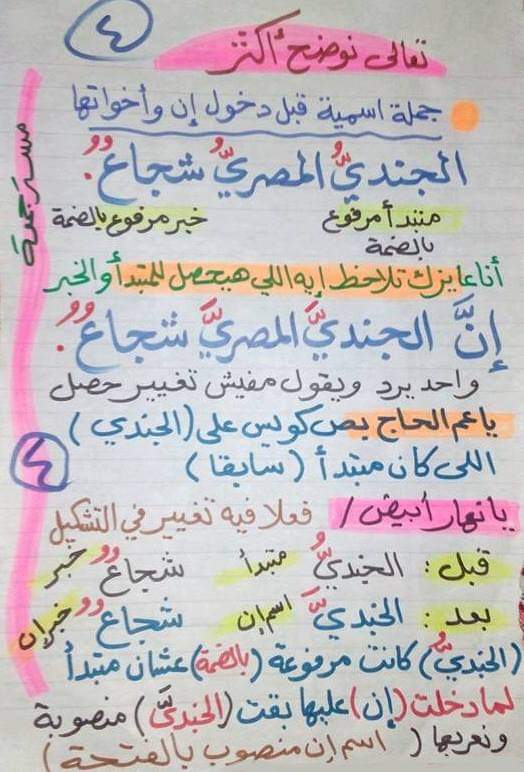 ٤
تعالى نوضح أكتر
جملة اسمية قبل دخول إن وأخواتها
الجنديُّ المصريُّ شجاعٌ.
مبتدأ مرفوع بالضمة
خبر مرفوع بالضمة
أنا عايزك تلاحظ إيه اللي هيحصل للمبتدأ والخبر
إنَّ الجنديَّ المصريَّ شجاعٌ.
واحد يرد ويقول مفيش تغيير حصل
يا عم الحاج بص كويس على (الجندي)
اللى كان مبتدأ (سابقا)
٤
يا نهار أبيض / فعلا فيه تغيير في التشكيل
قبل: الجنديُّ مبتدأ شجاعٌ خبر
بعد: الجنديَّ اسم إن شجاعٌ خبر إن
(الجنديُّ) كانت مرفوعة (بالضمة) عشان مبتدأ
لما دخلت (إن) عليها بقت (الجنديَّ) منصوبة
ونعربها (اسم إن منصوب بالفتحة)
مستر حمدة